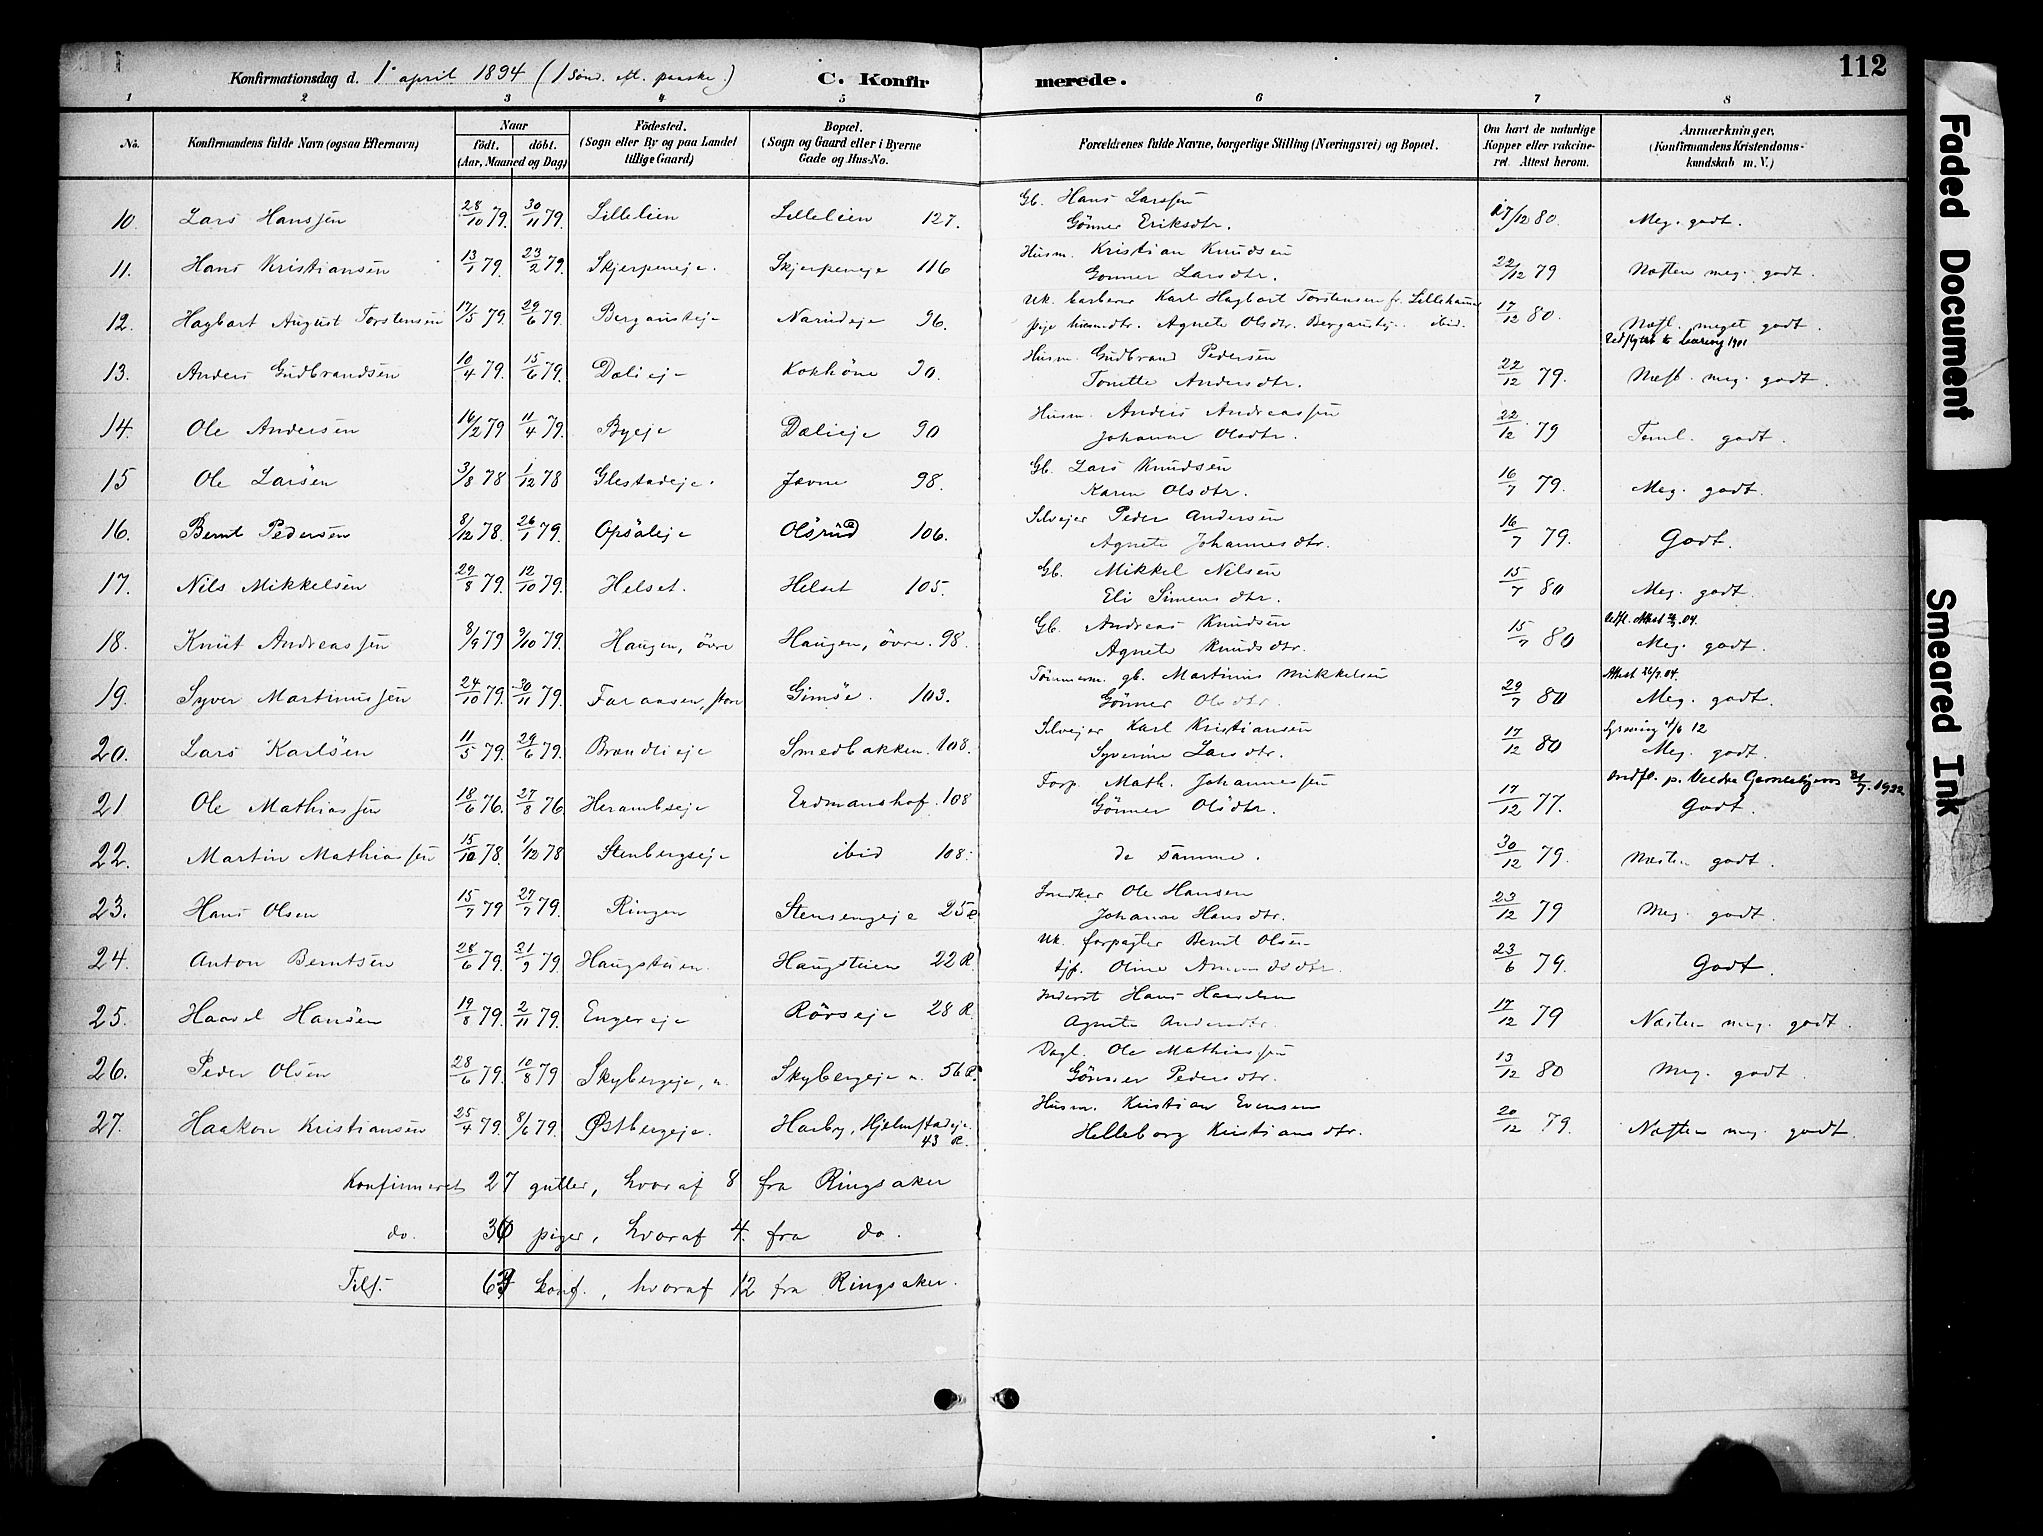 112
Konfirmationsdag d. 1 april 1894 (1 sønd. eft. paaske.) C. Konfirmerede.
1 2 3 4 5 6 7 8
No. Konfirmandens fulde Navn (ogsaa Efternavn) Naar født. døbt. (Aar, Maaned og Dag) Födested. (Sogn eller By og paa Landet tillige Gaard) Bopæl. (Sogn og Gaard eller i Byerne Gade og Hus-No. Forældrenes fulde Navne, borgerlige Stilling (Næringsvei) og Bopæl. Om havt de naturlige Kopper eller vakcineret. Attest herom. Anmærkninger. (Konfirmandens Kristendomskundskab m. V.)
10 Lars Hanssen 28/10 79. 30/11 79. Lillelien Lillelien 127. Gb. Hans Larssen
Gönner Eriksdtr. 17/12 80. Meg. godt.
11. Hans Kristiansen 13/1 79. 23/2 79. Skjerpeneje. Skjerpeneje 116 Husm. Kristian Knudsen
Gönner Larsdtr. 22/12 79 Næsten meg. godt.
12. Hagbart August Torstensen 17/5 79. 29/6 79. Bergausteje Narudeje 96. Uk. barberer Karl Hagbart Torstensen fr. Lillehamer
pige husmdtr. Agnete Olsdtr. Bergaustej. ibid. 17/12 80. Næst. meget godt.
13. Anders Gudbrandsen 10/4 79. 15/6 79. Dælieje Kokhöne 90. Husm. Gudbrand Pedersen
Tonette Andersdtr. 22/12 79. Næst. meg. godt.
14. Ole Andersen 16/2 79 11/4 79. Byeje Dælieje 90 Husm. Anders Andreassen
Johanne Olsdtr. 22/12 79 Teml. godt.
15 Ole Larsen 3/8 78 1/12 78 Glestadeje. Jevne 98. Gb. Lars Knudsen
Karen Olsdtr. 16/7 79. Meg. godt.
16. Bernt Pedersen 8/12 78. 26/1 79. Opsaleje Olsrud 106. Selvejer Peder Andersen
Agnete Johannesdtr. 16/7 79. Godt.
17. Nils Mikkelsen 29/8 79. 12/10 79. Helset. Helset 105. Gb. Mikkel Nilsen
Eli Simensdtr. 15/7 80 Meg. godt.
18. Knut Andreassen 8/9 79 9/10 79. Haugen, övre Haugen, övre. 98. Gb. Andreas Knudsen
Agnete Knudsdtr. 15/7 80 Meg. godt.
19. Syver Martinussen 24/10 79. 30/11 79. Faraasen, store Gimse. 103. Tömmerm. gb. Martinus Mikkelsen
Gönner Olsdtr. 29/7 80 Attest 26/3.04.
Meg. godt.
20. Lars Karlsen 11/5 79. 29/6 79. Brændlieje Smedbakken. 108. Selvejer Karl Kristiansen
Syverine Larsdtr. 17/12 80 Meg. godt.
21 Ole Mathiassen 18/6 76. 27/8 76. Herambseje Erdmanshof. 108 Forp. Math. Johannessen
Gönner Olsdtr. 17/12 77. Godt.
22. Martin Mathiassen 15/10 78. 1/12 78 Stenbergseje ibid 108. de samme. 30/12 79. Næsten godt.
23. Hans Olsen 15/7 79 27/7 79. Ringen Stensengeje 25 R. Snedker Ole Hansen
Johanne Hansdtr. 23/12 79 Meg. godt.
24. Anton Berntsen 28/6 79. 21/9 79. Haugstuen. Haugstuen 22 R. Uk. forpagter Bernt Olsen
tjp. Oline Amundsdtr. 23/6 79. Godt.
25. Haavel Hansen 19/8 79. 2/11 79. Engereje Rörseje 28 R. Inderst Hans Haavelsen
Agnete Andersdtr. 17/12 79 Næsten meg. godt.
26. Peder Olsen 28/6 79. 10/8 79 Skybergeje, n. Skybergeje n. 56 R. Dagl. Ole Mathiassen
Gönner Pedersdtr. 13/12 80 Meg. godt.
27. Haakon Kristiansen 25/4 79. 8/6 79. Østbergeje. Harby, Hjelmstadeje.
43 R. Husm. Kristian Evensen
Helleborg Kristiansdtr. 20/12 79. Næsten meg. godt.
Konfirmeret 27 gutter, hvoraf 8 fra Ringsaker
do. 30 piger, hvoraf 4. fra do.
Tils. konf., hvoraf 12 fra Ringsaker.
Faded Document
Smeared Ink